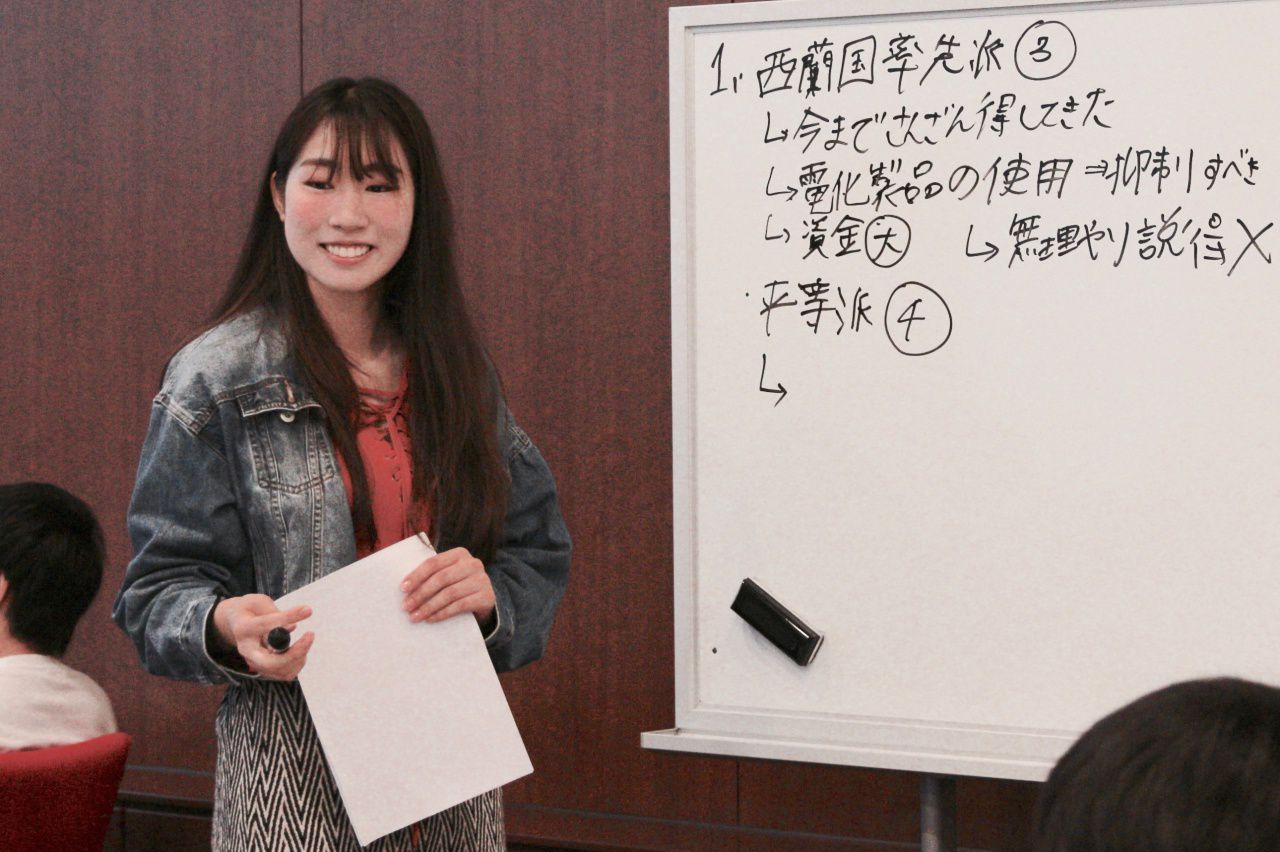 1. 西蘭国率先派③
↳今までさんざん得してきた
↳電化製品の使用⇒抑制すべき
↳資金㊅ ↳無理やり説得X
・平等派④
↳